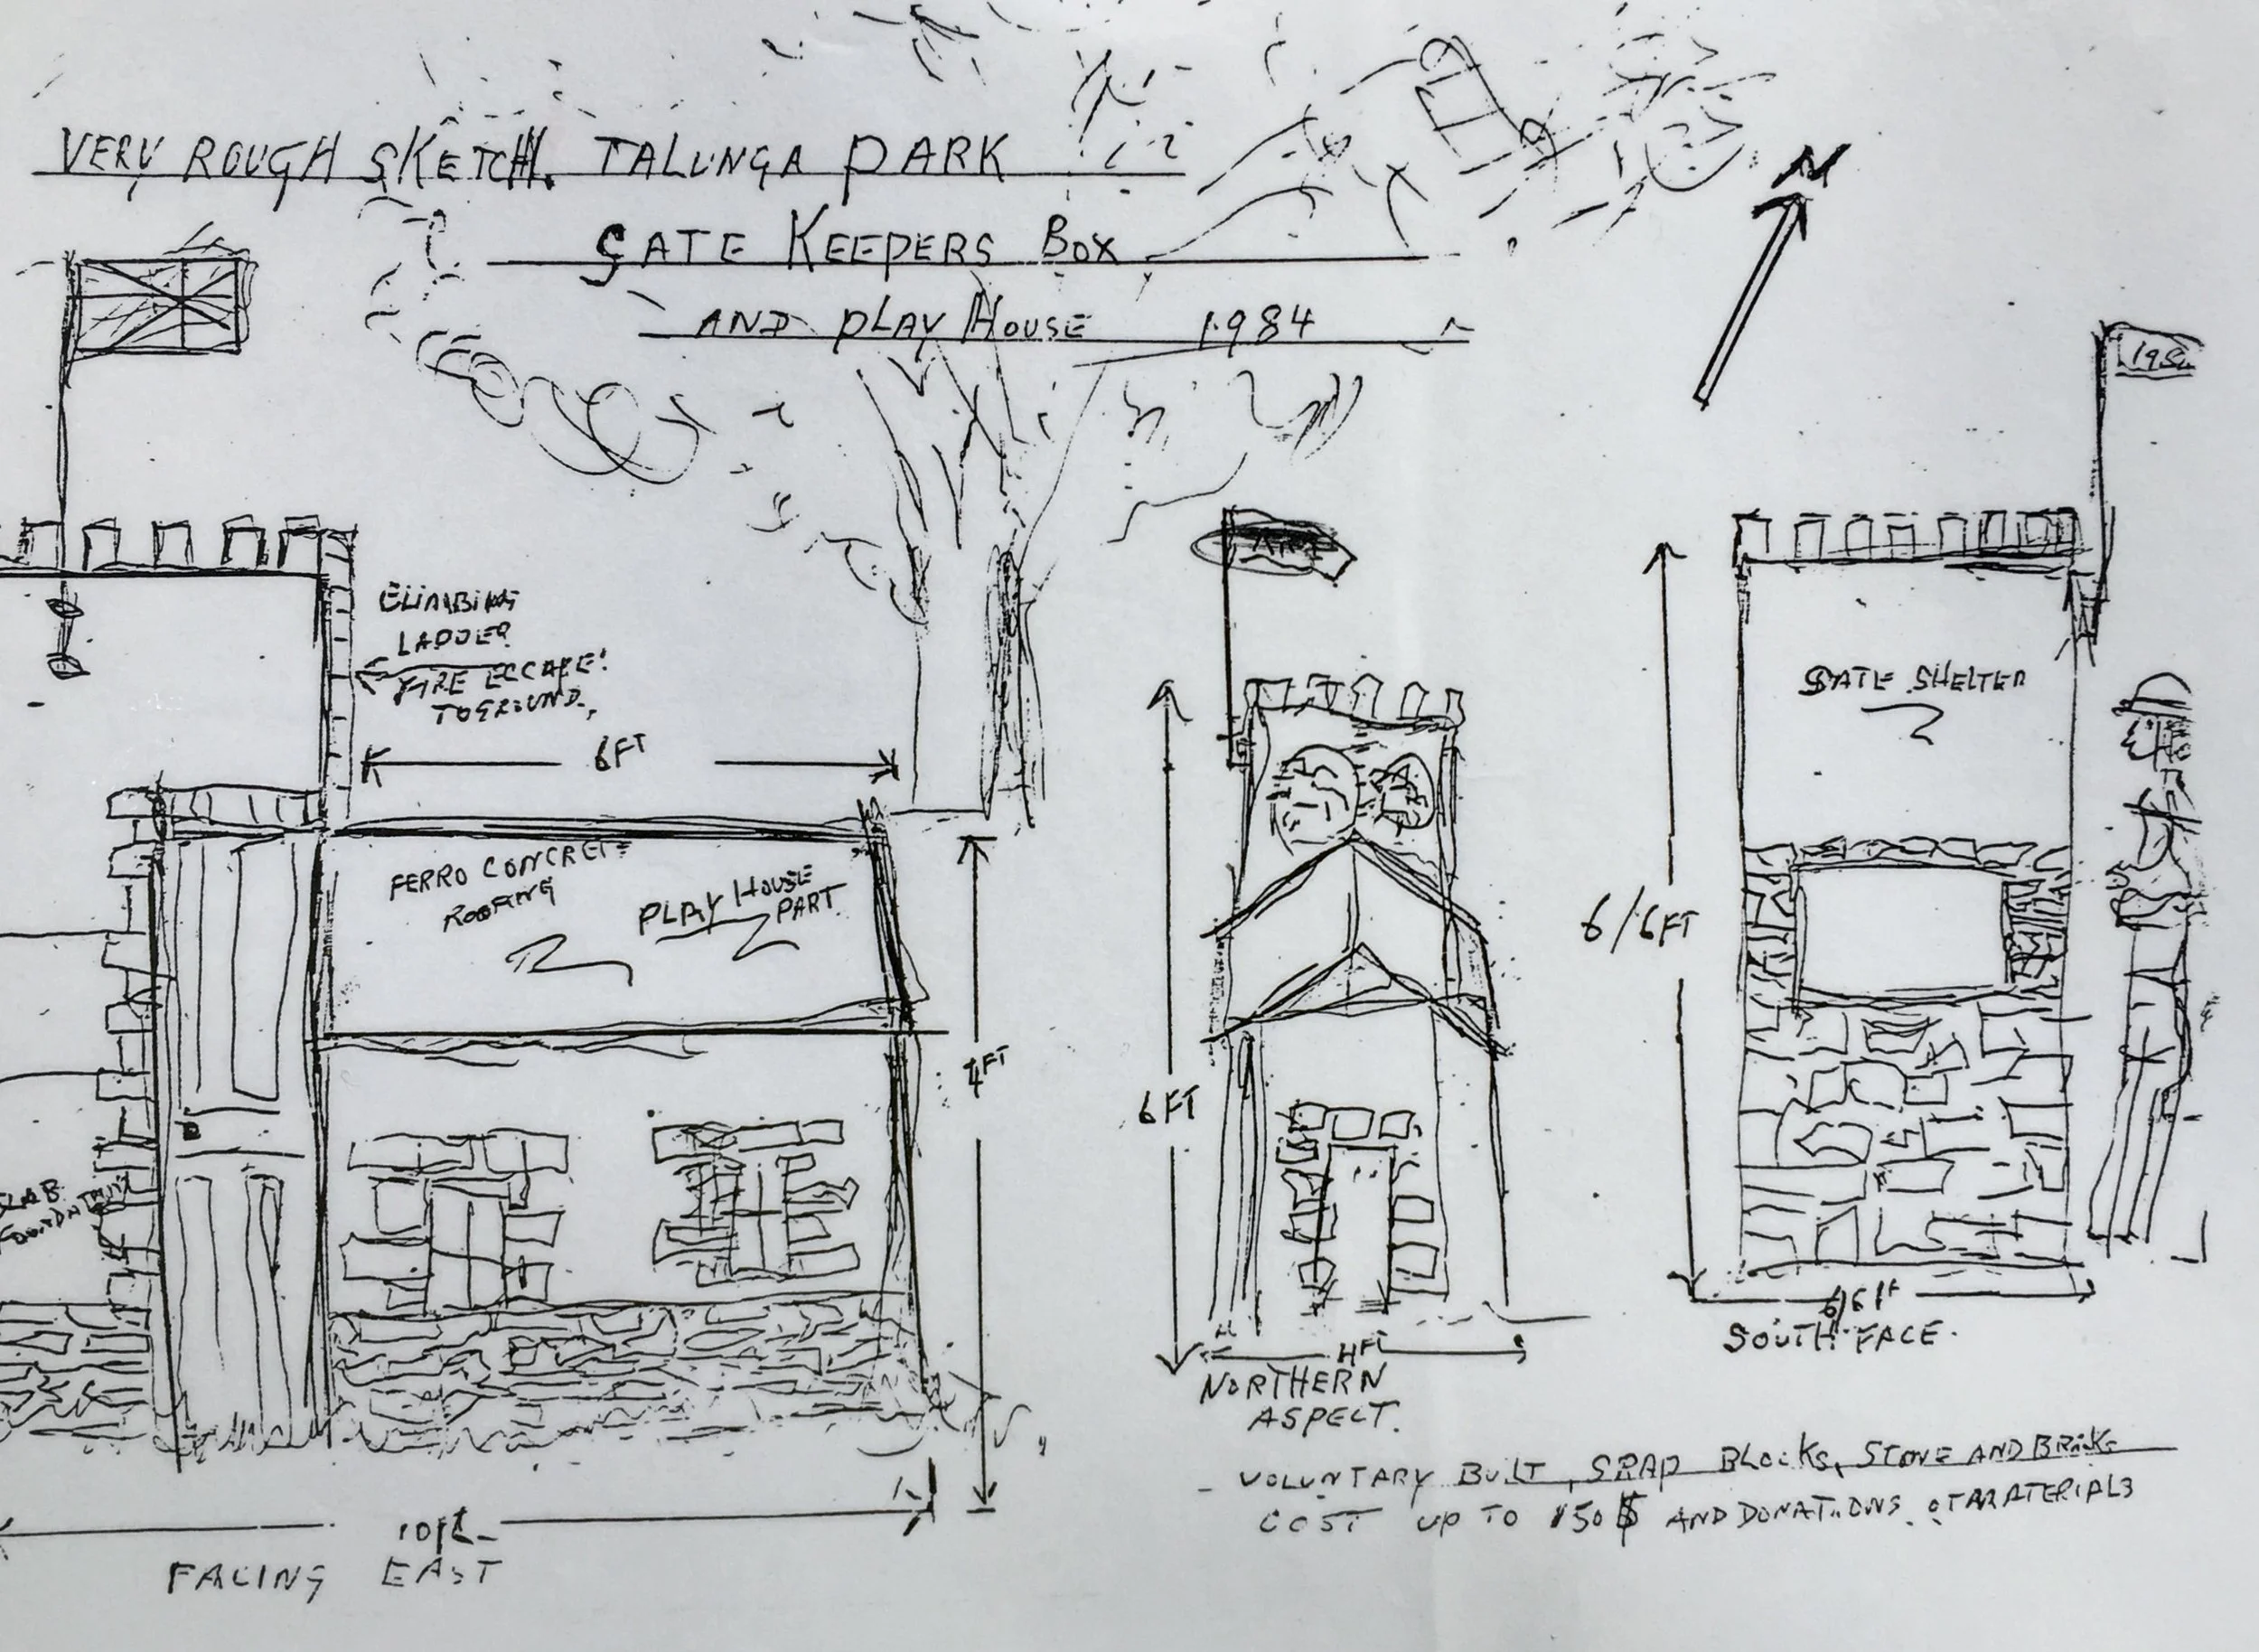 VERY ROUGH SKETCH. TALUNGA PARK
GATE KEEPERS BOX
AND PLAY HOUSE 1984
N
198
ART
CLIMBING
LADDER
FIRE ECCAPE!
TO GROUND.
6FT
FERRO CONCRETE
ROOFING
PLAY HOUSE
PART.
4FT
SLAB
10ft
FACING EAST
6FT
4FT
NORTHERN
ASPECT.
GATE SHELTER
6/6FT
6/6 FT
SOUTH FACE.
- VOLUNTARY BUILT, SRAP BLOCKS, STONE AND BRICK
COST UP TO 150$ AND DONATIONS OF MATERIALS